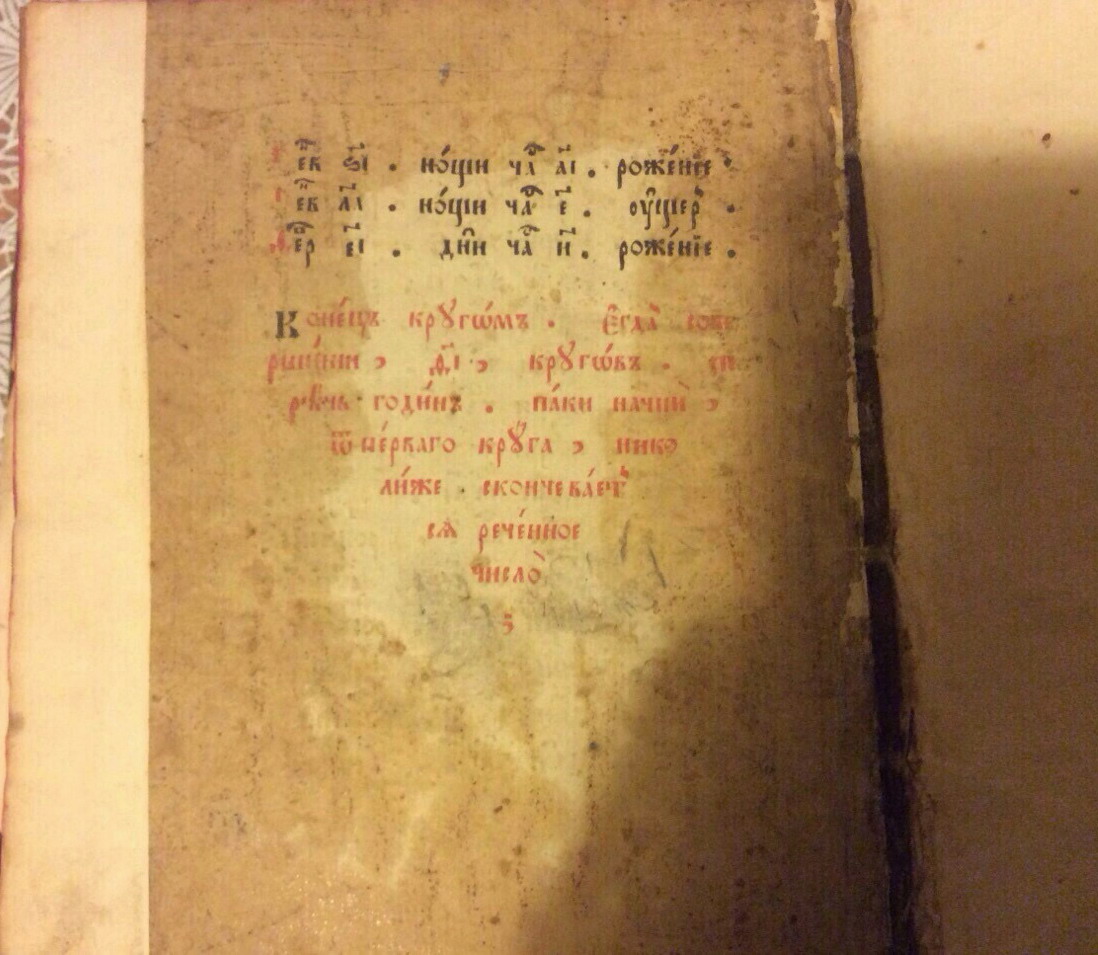 е҆в ѕ҃і . но́щи ча҃ а҃і . роже́нїе .
е҆в л҃а . но́щи ча҃ е҃ . ᲂу҆ще́р .
де҆р е҃і . дни̑ ча҃ и҃ . роже́нїе .
Коне́цъ крꙋгѡ́мъ . Е҆гда̀ сове
рши́ши , д҃і , крꙋгѡ́въ .
рѣ́чь годи́нъ . па́ки начнѝ ,
ѿ пе́рваго крꙋ́га , нико
ли́же скончева́ет
сѧ рече́нное
число̀